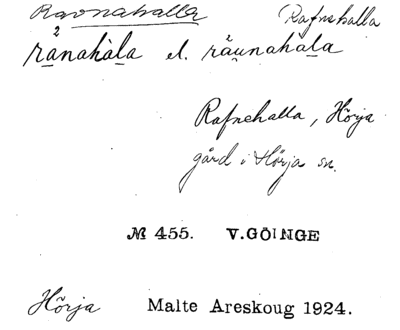 Ravnahalla Rafnehalla
rånahàla el. råunahàla
Rafnehalla, Hörja
gård i Hörja sn.
№ 455. V. GÖINGE
Hörja Malte Areskoug 1924.